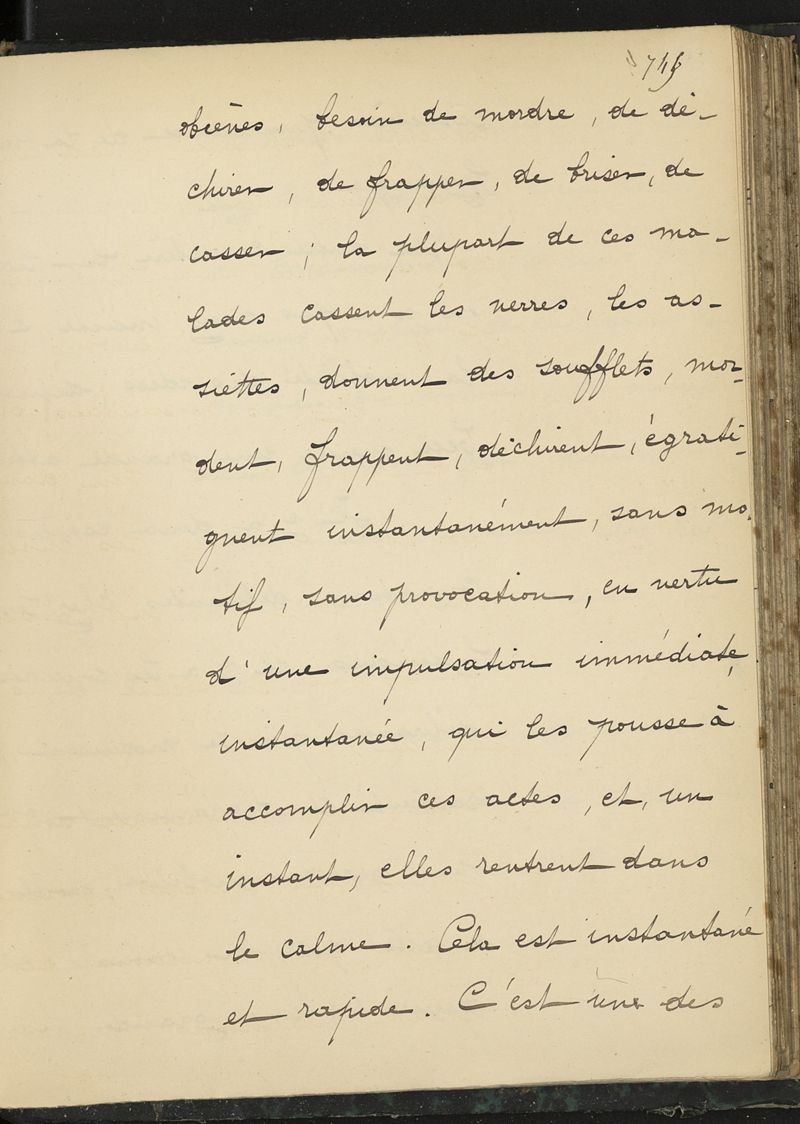 745
obscènes, besoin de mordre, de dé-
chirer, de frapper, de briser, de
casser ; la plupart de ces ma-
lades cassent les verres, les as-
siettes, donnent des soufflets, mor-
dent, frappent, déchirent, égrati-
gnent instantanément, sans mo-
tif, sans provocation, en vertu
d'une impulsation immédiate,
instantanée, qui les pousse à
accomplir ces actes, et, un
instant, elles rentrent dans
le calme. Cela est instantané
et rapide. C'est une des